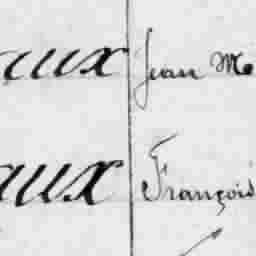 aux Jean Me
aux François